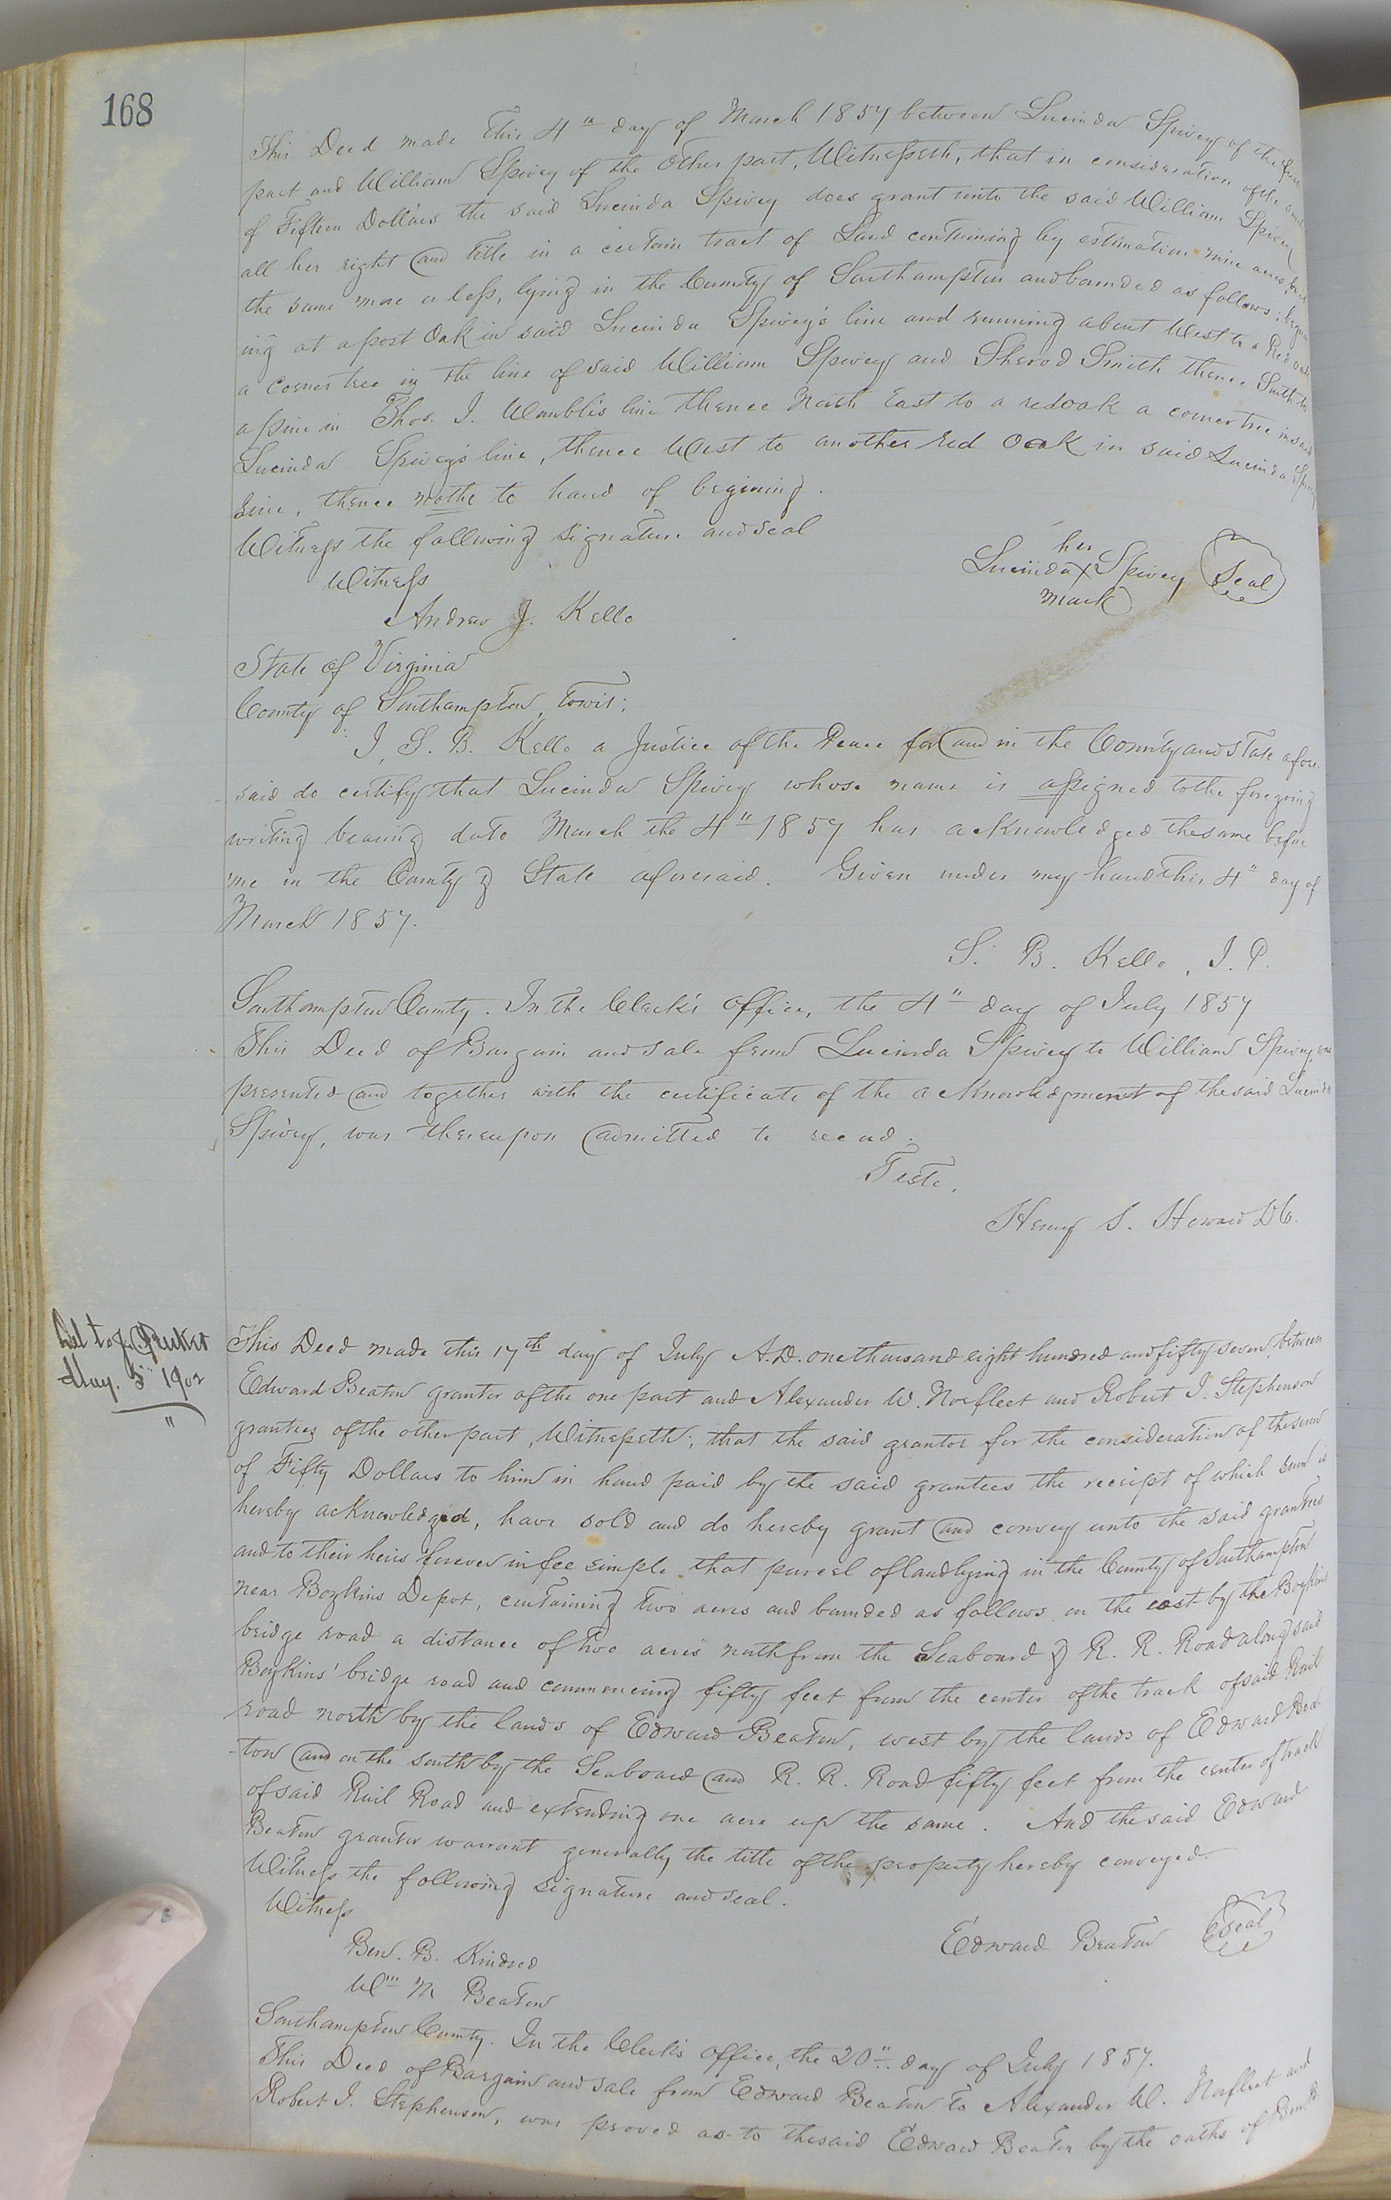 168
This Deed made this 4th day of March 1857 between Lucinda Spivey of the first
part and William Spivey of the other part, Witnesseth, that in consideration of the
of Fifteen Dollars the said Lucinda Spivey does grant unto the said William Spivey
all her right and title in a certain tract of Land containing by estimation nine acres, be it
the same more or less, lying in the County of Southampton and bounded as follows; begin
ing at a post Oak in said Lucinda Spivey's line and running about West to a Red oak
a corner tree in the line of said William Spivey and Sherod Smith thence South to
a pine in Thos. J. Womble's line thence North East to a redoak a corner tree in said
Lucinda Spivey's line, thence West to another red Oak in said Lucinda Spivey
line, thence nothe to hand of begining.
Witness the following signature and seal
her
Lucinda X Spivey Seal
mark
Witness
Andrew J. Kello
State of Virginia
County of Southampton, towit;
I, S. B. Kello a Justice of the Peace for and in the County and State afore
said do certify that Lucinda Spivey whose name is assigned to the foregoing
writing bearing date March the 4" 1857 has acknowledged the same before
me in the County & State aforesaid. Given under my hand this 4" day of
March 1857.
S. B. Kello, J. P.
Southampton County. In the Clerk's Office, the 4" day of July 1857
This Deed of Bargain and sale from Lucinda Spivey to William Spivey, was
presented and together with the certificate of the acknowledgment of the said Lucinda
Spivey, was thereupon admitted to record.
Teste,
Henry S. Howard DC.
Del to
May. 5" 1902
This Deed made this 17th day of July A.D. one thousand eight hundred and fifty seven, between
Edward Beaton grantor of the one part and Alexander W. Norfleet and Robert J. Stephenson
grantees of the other part, Witnesseth; that the said grantor for the consideration of the sum
of Fifty Dollars to him in hand paid by the said grantees the receipt of which sum is
hereby acknowledged, have sold and do hereby grant and convey unto the said grantees
and to their heirs forever in fee simple that parcel of land lying in the County of Southampton
near Boykins Depot, containing two acres and bounded as follows on the east by the Boykins
bridge road a distance of two acres north from the Seaboard & R. R. Road along said
Boykins' bridge road and commencing fifty feet from the center of the track of said Rail
road north by the lands of Edward Beaton, west by the lands of Edward Bea-
ton and on the south by the Seaboard and R. R. Road fifty feet from the center of track
of said Rail Road and extending one acre up the same. And the said Edward
Beaton grantor warrant generally the title of the property hereby conveyed.
Witness the following signature and seal.
Edward Beaton Seal
Witness
Ben. B. Kindred
Wm M Beaton
Southampton County. In the Clerk's office, the 20" day of July 1857.
This Deed of Bargain and sale from Edward Beaton to Alexander W. Norfleet and
Robert J. Stephenson, was proved as to the said Edward Beaton by the oaths of Ben B.